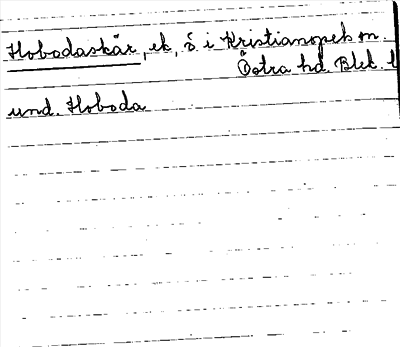 Hobodaskär, ek, ö i Kristianopels sn.
Östra hd. Blek. l
und. Hoboda